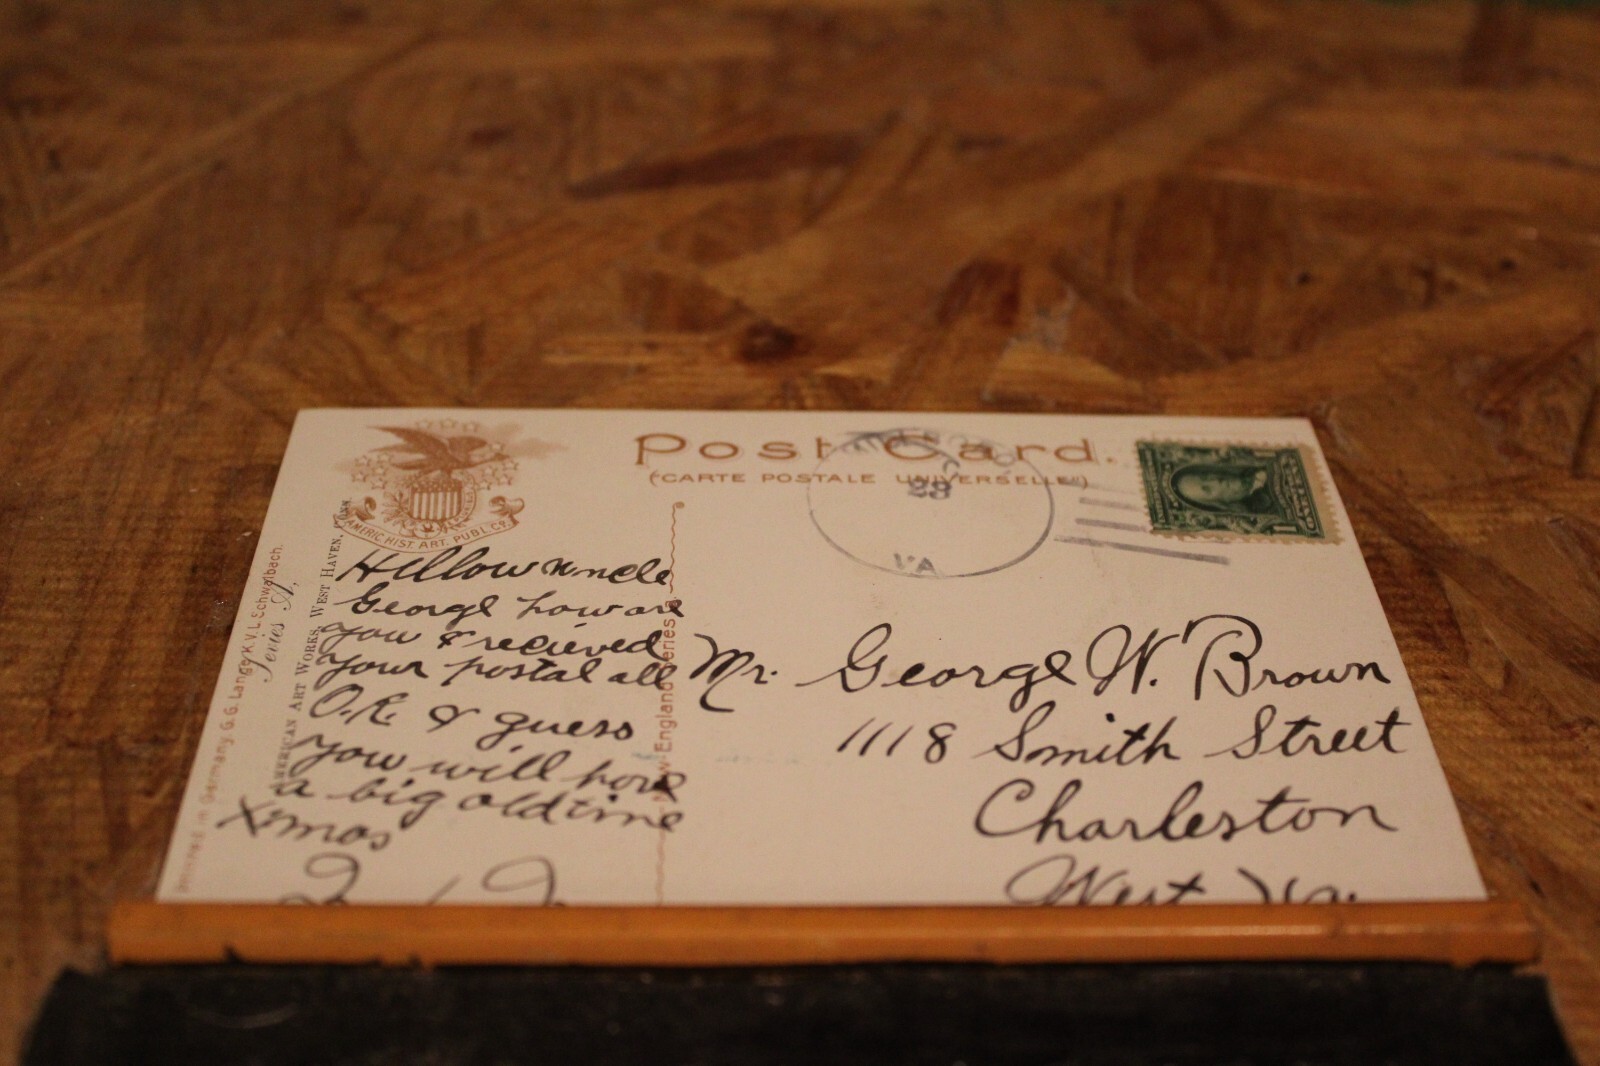 Post Card.
(CARTE POSTALE UNIVERSELLE)
AMERIC. HIST. ART. PUBL. Co.
VA
Hellow uncle
George how are
you & recieved
your postal all
O.K. & guess
you will have
a big old time
Xmas
Mr. George W. Brown
1118 Smith Street
Charleston
West Va.
New-England Series
AMERICAN ART WORKS, WEST HAVEN, CONN.
Series A,
Printed in Germany G. G. Lange K. V. L. Schwalbach.